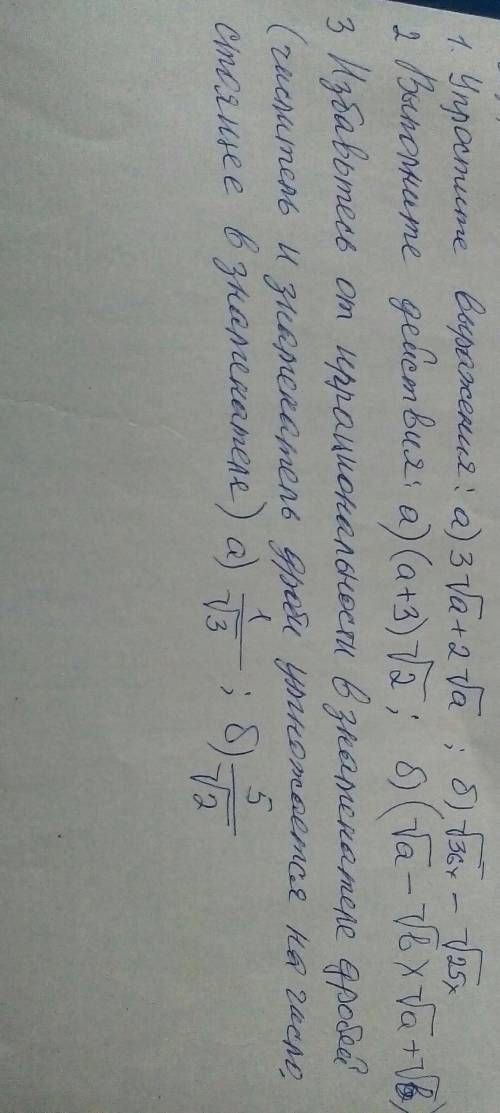 1. Упростите выражения: а) 3√a + 2√a ; б) √36x − √25x
2 Выполните действия: а) (a+3)√2 ; б) (√a − √b)(√a + √b)
3 Избавьтесь от иррациональности в знаменателе дробей
(числитель и знаменатель дроби умножается на число,
стоящее в знаменателе) а) 1/√3 ; б) 5/√2